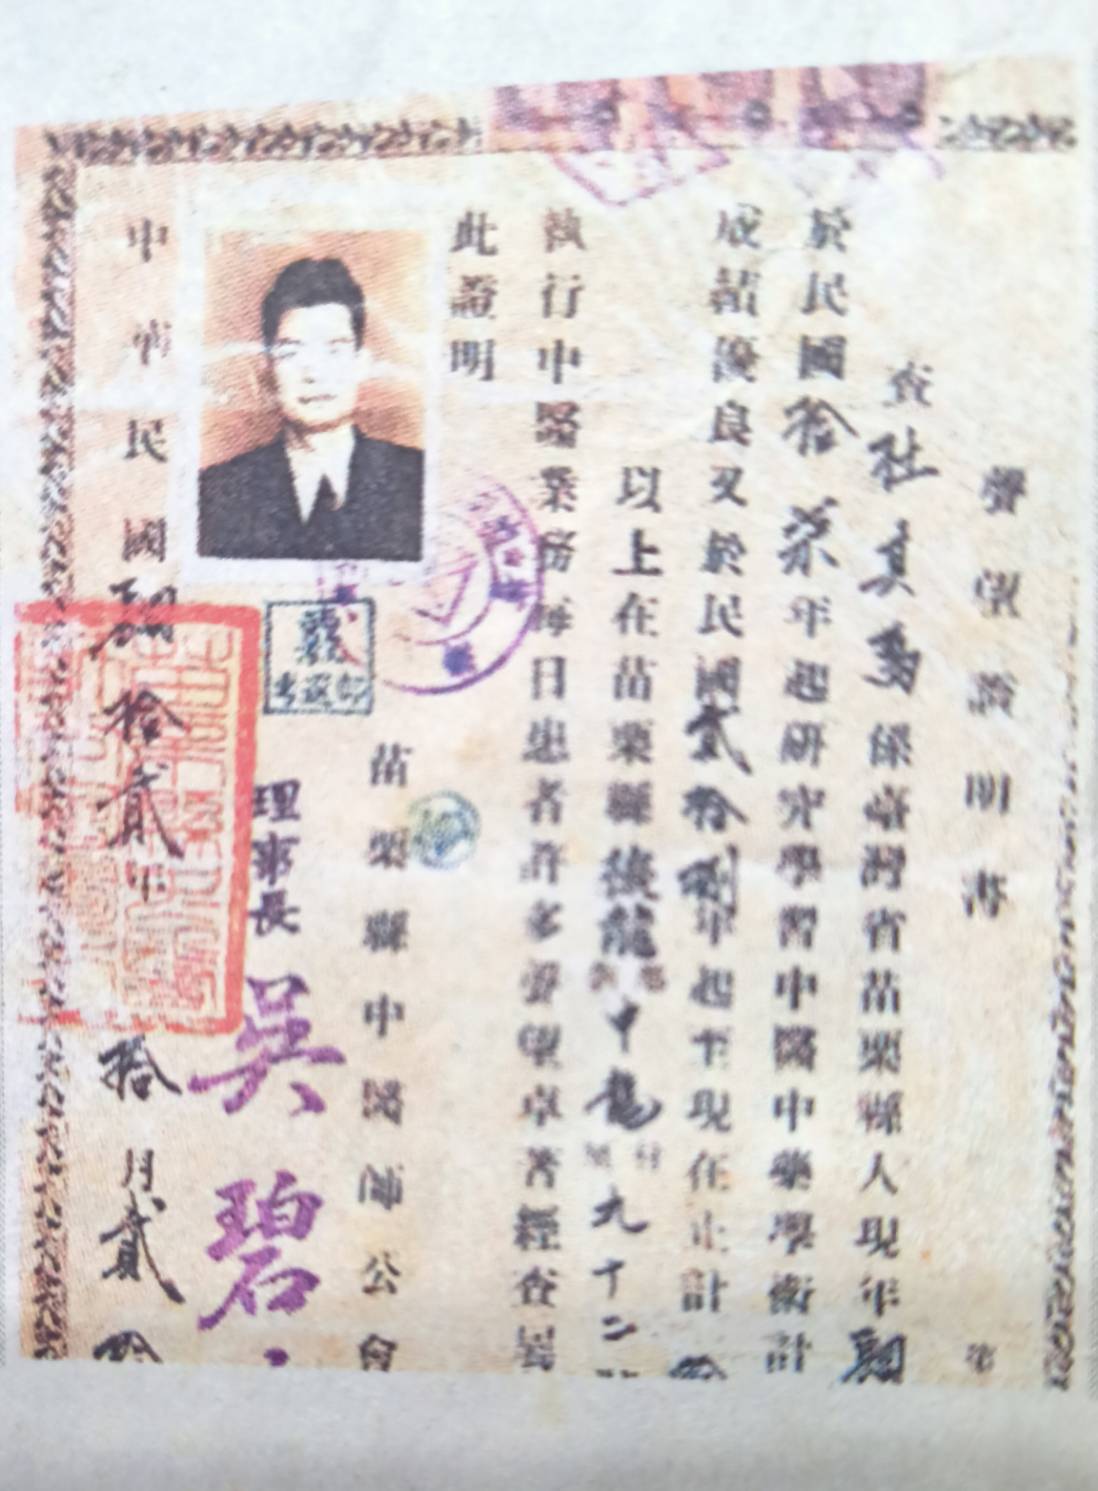 聲望證明書
第
查杜其芳係臺灣省苗栗縣人現年
於民國拾柒年起研究學習中醫中藥學術計
成績優良又於民國貳拾捌年起至現在止計拾
以上在苗栗縣後龍
中龍
九十二號
執行中醫業務每日患者許多聲望卓著經查屬
此證明
苗栗縣中醫師公會
理事長吳碧
考選部
中華民國
拾貳年拾月貳拾